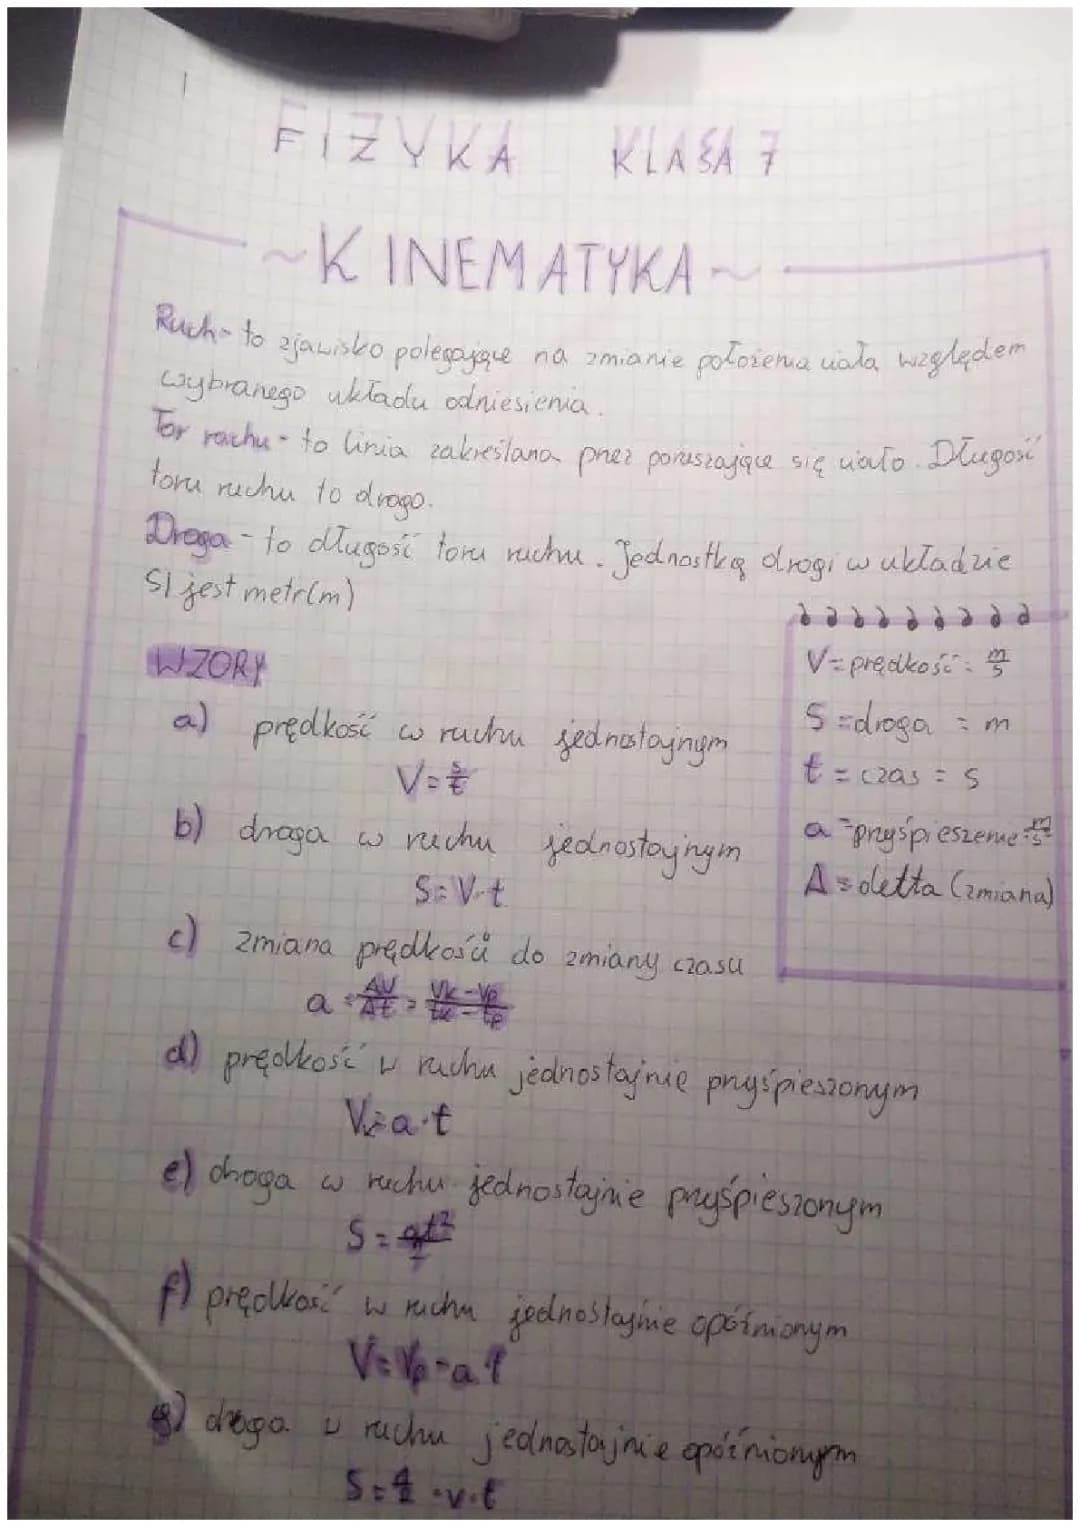 FIZYKA KLASA 7
~KINEMATYKA~
Ruch- to zjawisko polegające na zmianie położenia ciała względem
wybranego układu odniesienia.
Tor ruchu - to linia zakreślana przez poruszające się ciało. Długość
toru ruchu to droga.
Droga - to długość toru ruchu. Jednostką drogi w układzie
SI jest metr(m)
WZORY
a) prędkość w ruchu jednostajnym
V=s/t
b) droga w ruchu jednostajnym
S=V·t
c) zmiana prędkości do zmiany czasu
a=ΔV/Δt=Vk-Vp/tk-tp
d) prędkość w ruchu jednostajnie przyśpieszonym
V=a·t
e) droga w ruchu jednostajnie przyśpieszonym
S=at²/2
f) prędkość w ruchu jednostajnie opóźnionym
V=Vp-a·t
g) droga w ruchu jednostajnie opóźnionym
S=1/2·v·t
V=prędkość=m/s
S=droga=m
t=czas=s
a=przyśpieszenie=m/s²
Δ=delta (zmiana)